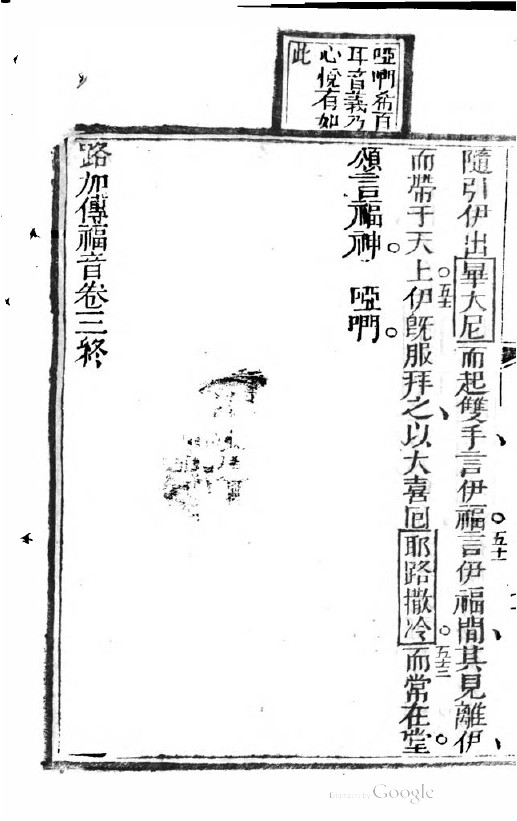 啞唎希百
耳音義乃
心悅有如
此
隨引伊出畢大尼而起雙手言伊福。五十一言伊福間、其見離伊、
而帶于天上。五十二伊旣服拜之、以大喜囘耶路撒冷。五十三而常在堂。
頌言福神。啞唎。
路加傳福音卷三終
Google